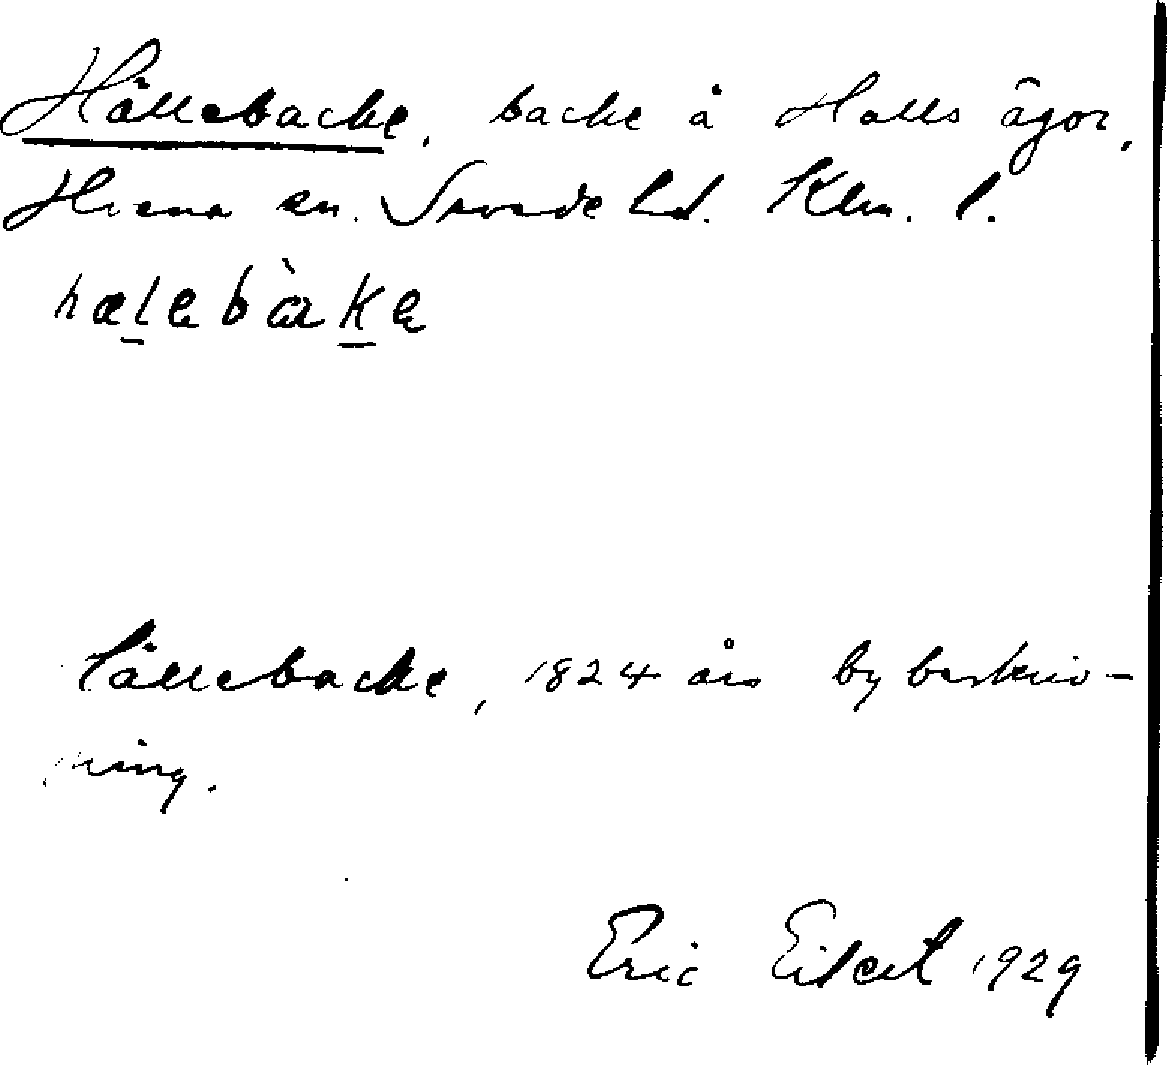 Hällebacke, backe å Halls ägor,
Hvena sn. Sevede hd. Klm. l.
hælebàke
Källebacke, 1824 års bybeskriv-
ning.
Eric Elset 1929